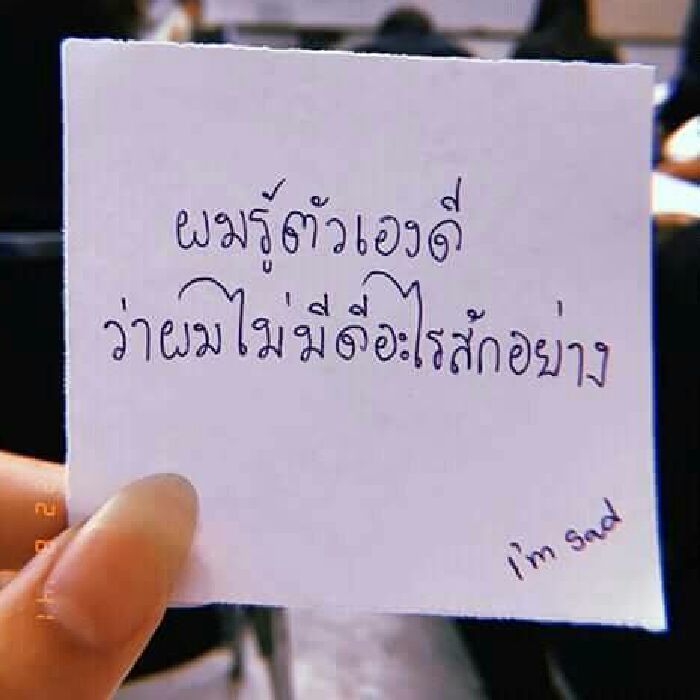 ผมรู้ตัวเองดี
ว่าผมไม่มีดีอะไรสักอย่าง
i'm sad